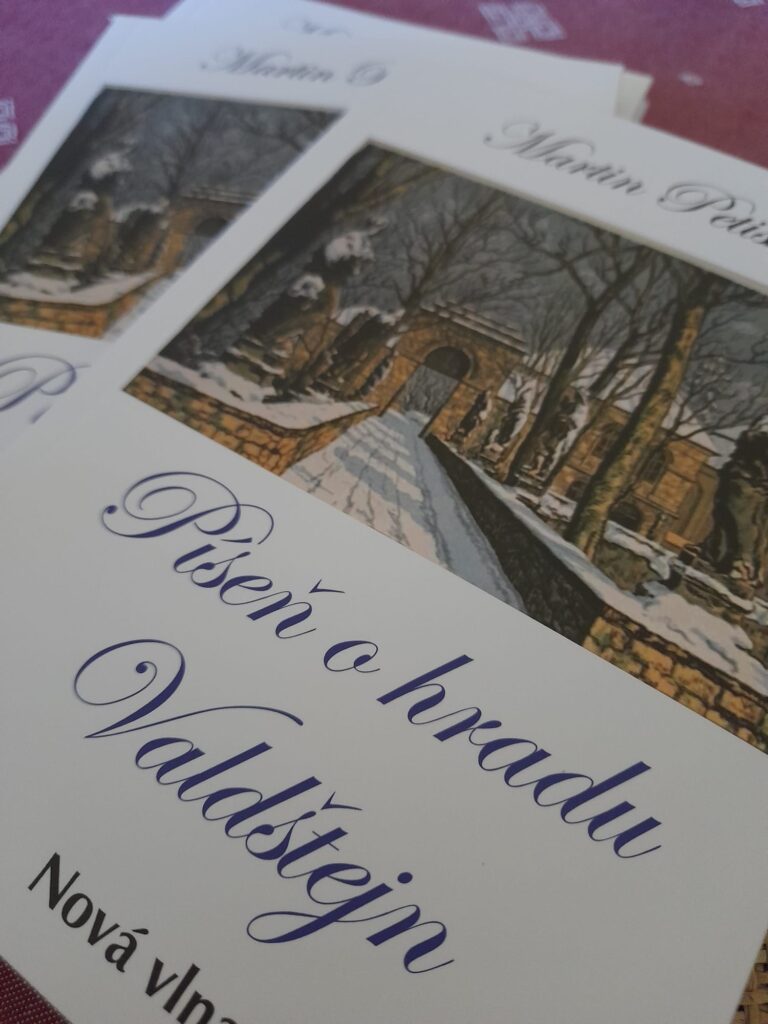 Martin
Martin
Píseň o hradu
Valdštejn
Nová